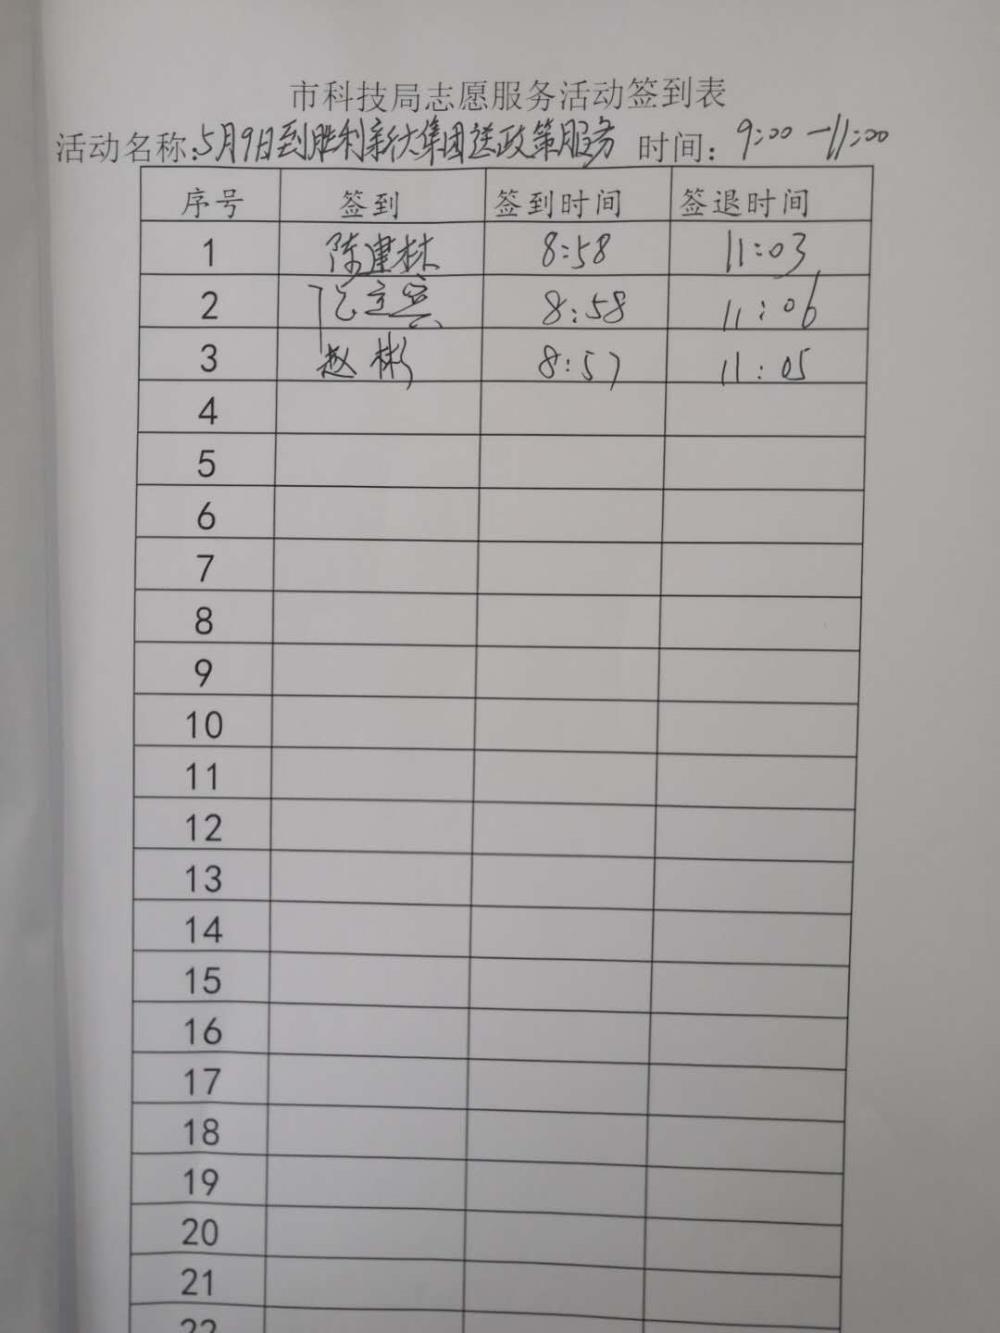 市科技局志愿服务活动签到表
活动名称:5月9日到胜利新大集团送政策服务 时间: 9:00—11:00
序号 签到 签到时间 签退时间
1 陈建林 8:58 11:03
2 8:58 11:06
3 赵彬 8:57 11:05
4
5
6
7
8
9
10
11
12
13
14
15
16
17
18
19
20
21
22